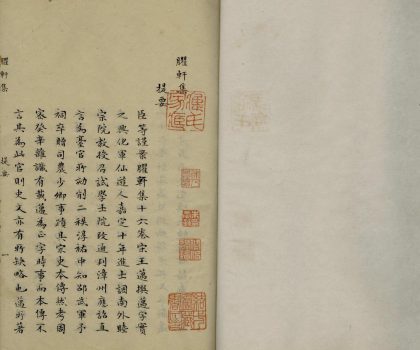 臞軒集
提要
臣等謹案臞軒集十六卷宋王邁撰邁字實
之興化軍仙遊人嘉定十年進士調南外睦
宗院教授召試學士院改通判漳州應詔直
言為臺官所劾削二秩淳祐中知邵武軍予
祠卒贈司農少卿事蹟具宋史本傳然考周
密癸辛雜識有載邁為正字時事而本傳不
言其為此官則史文亦有所缺略也邁所著
臞軒集 提要 一